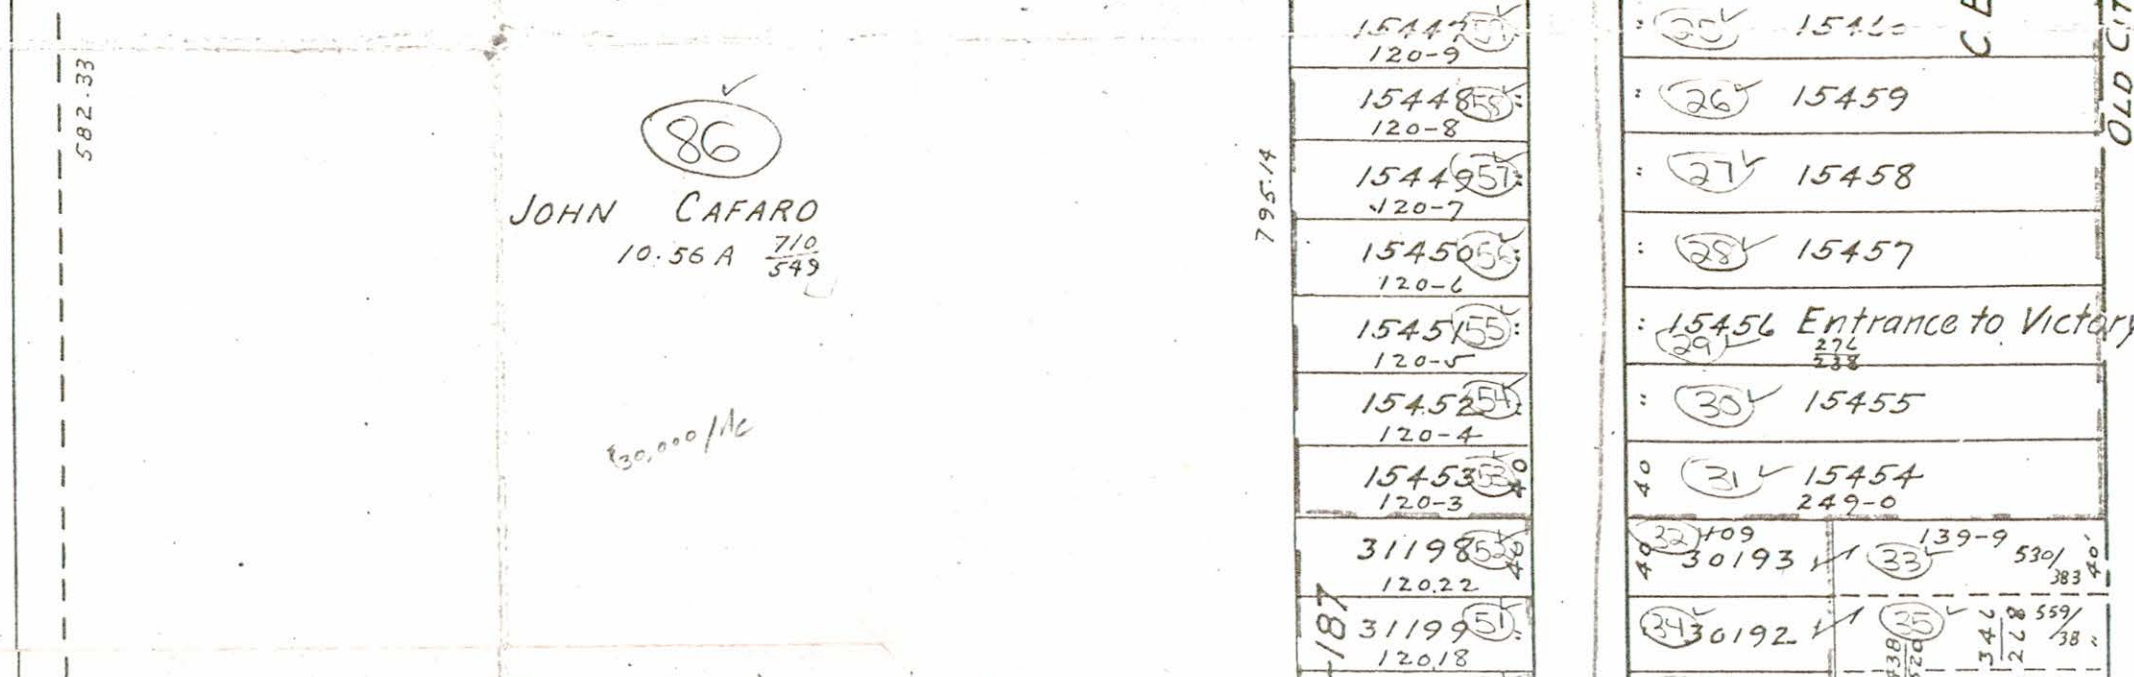 582.33
86
JOHN CAFARO
10.56 A 710/549
30,000/Ac
795.14
15447
120-9
15448 58
120-8
15449 57
120-7
15450 56
120-6
15451 55
120-5
15452 54
120-4
15453 53 40
120-3
31198 52 40
120.22
-187
31199 51
120.18
25
26 15459
27 15458
28 15457
15456 Entrance to Victory
29 276/238
30 15455
40 31 15454
249-0
32 109
40 30193
139-9
33 530/383 40'
34 30192
35 346/268 559/38
OLD CIT